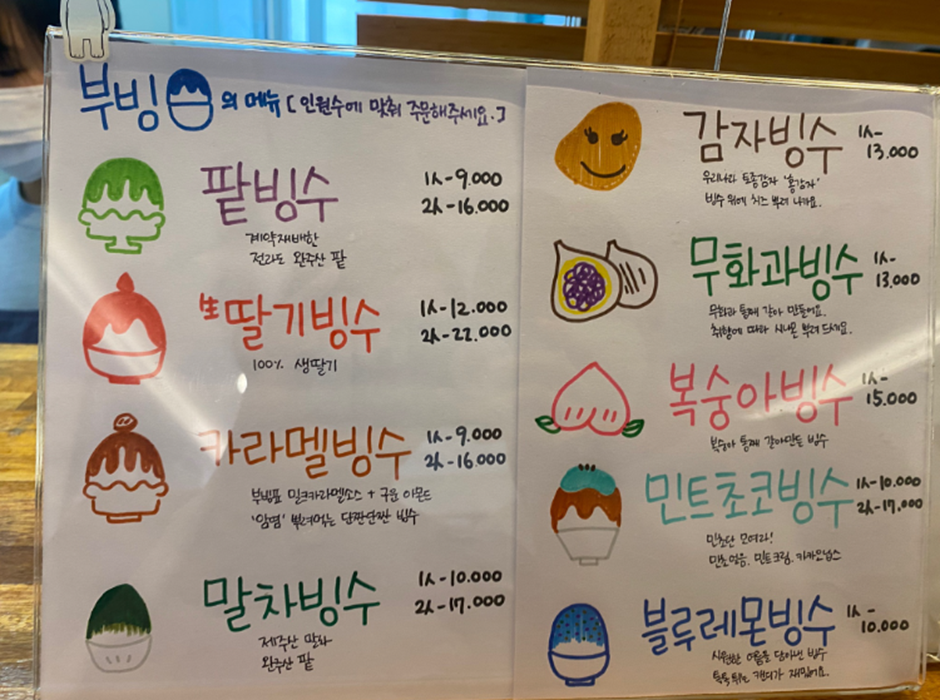 부빙의 메뉴 [인원수에 맞춰 주문해주세요.]
팥빙수
1人-9.000
2人-16.000
계약재배한
전라도 완주산 팥
生딸기빙수
1人-12.000
2人-22.000
100% 생딸기
카라멜빙수
1人-9.000
2人-16.000
부빙표 밀크카라멜소스 + 구운 아몬드
'암염' 뿌려먹는 단짠단짠 빙수
말차빙수
1人-10.000
2人-17.000
제주산 말차
완주산 팥
감자빙수
1人-
13.000
우리나라 토종감자 '홍감자'
빙수 위에 치즈 뿌려 나가요.
무화과빙수
1人-
13.000
무화과 통째 갈아 만들어요.
취향에 따라 시나몬 뿌려 드세요.
복숭아빙수
1人-
15.000
복숭아 통째 갈아만든 빙수
민트초코빙수
1人-10.000
2人-17.000
민초단 모여라!
민초얼음, 민트크림, 카카오닙스
블루레몬빙수
1人-
10.000
시원한 여름을 담아낸 빙수
톡톡 튀는 캔디가 재밌어요.